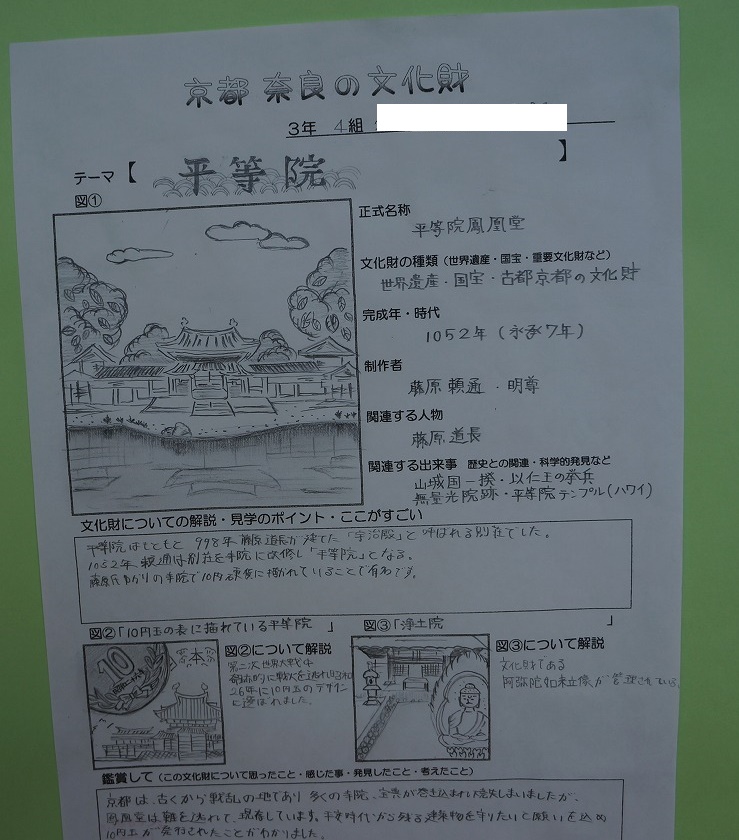 京都 奈良の文化財
3年 4組
テーマ【 平等院 】
図①
正式名称
平等院鳳凰堂
文化財の種類(世界遺産・国宝・重要文化財など)
世界遺産・国宝・古都京都の文化財
完成年・時代
1052年(永承7年)
制作者
藤原頼通・明尊
関連する人物
藤原道長
関連する出来事 歴史との関連・科学的発見など
山城国一揆・以仁王の挙兵
無量光院跡・平等院テンプル(ハワイ)
文化財についての解説・見学のポイント・ここがすごい
平等院はもともと 998年 藤原道長が建てた「宇治殿」と呼ばれる別荘でした。
1052年 頼通は別荘を寺院に改修し「平等院」となる。
藤原氏ゆかりの寺院で10円硬貨に描かれていることで有名です。
図②「10円玉の表に描れている平等院 」
図②について解説
第二次世界大戦中
奇跡的に戦火を逃れ昭和
26年に10円玉のデザイン
に選ばれました。
10
日本
図③「浄土院 」
図③について解説
文化財である
阿弥陀如来立像が管理されている。
鑑賞して(この文化財について思ったこと・感じた事・発見したこと・考えたこと)
京都は、古くから戦乱の地であり多くの寺院、宝具が巻き込まれい焼失しまいましたが、
鳳凰堂は難を逃れて、現存しています。平安時代から残る建築物を守りたいと願いを込め
10円玉が発行されたことがわかりました。